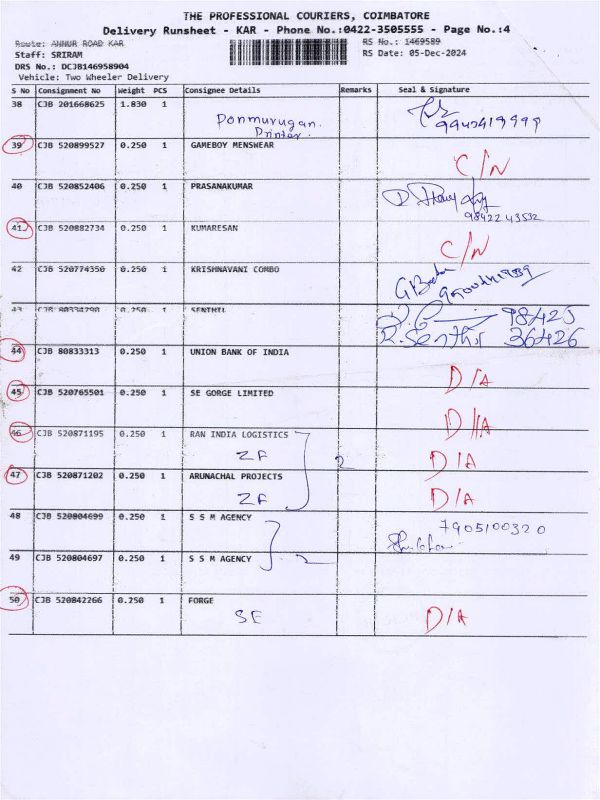 THE PROFESSIONAL COURIERS, COIMBATORE
Delivery Runsheet - KAR - Phone No.:0422-3505555 - Page No.:4
Route: ANNUR ROAD KAR RS No.: 1469589
Staff: SRIRAM RS Date: 05-Dec-2024
DRS No.: DCJB146958904
Vehicle: Two Wheeler Delivery
S No Consignment No Weight PCS Consignee Details Remarks Seal & Signature
38 CJB 201668625 1.830 1
Ponmurugan.
Printer.
39 CJB 520899527 0.250 1 GAMEBOY MENSWEAR
C/N
40 CJB 520852406 0.250 1 PRASANAKUMAR
9842243532
41 CJB 520882734 0.250 1 KUMARESAN
C/N
42 CJB 520774350 0.250 1 KRISHNAVANI COMBO
43 CJB 80334290 0.250 1 SENTHIL
98425
R.Senthil 36426
44 CJB 80833313 0.250 1 UNION BANK OF INDIA
D/A
45 CJB 520765501 0.250 1 SE GORGE LIMITED
D/A
46 CJB 520871195 0.250 1 RAN INDIA LOGISTICS
ZF 2 D/A
47 CJB 520871202 0.250 1 ARUNACHAL PROJECTS
ZF D/A
48 CJB 520804699 0.250 1 S S M AGENCY
7905100320
49 CJB 520804697 0.250 1 S S M AGENCY
2
50 CJB 520842266 0.250 1 FORGE
SE D/A